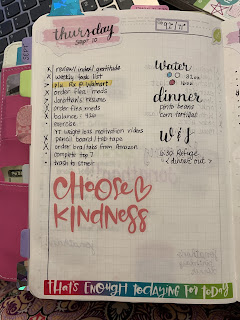 thursday
SEPT 10
x review/index/gratitude
x weekly task list
x P/u Rx @ Walmart!
x order flea meds
x Jonathan's resume
x order flea meds
x balance: 9/20
exercise
YT weight loss motivation videos
x pencil board/tab tape
x order bra/tabs from Amazon
complete top 7
x trash to street
water
dinner
pinto beans
corn tortillas
w/s
16:30 Refuge
<dinner out>
CHOOSE
KINDNESS
THAT'S ENOUGH TODAYING FOR TODAY